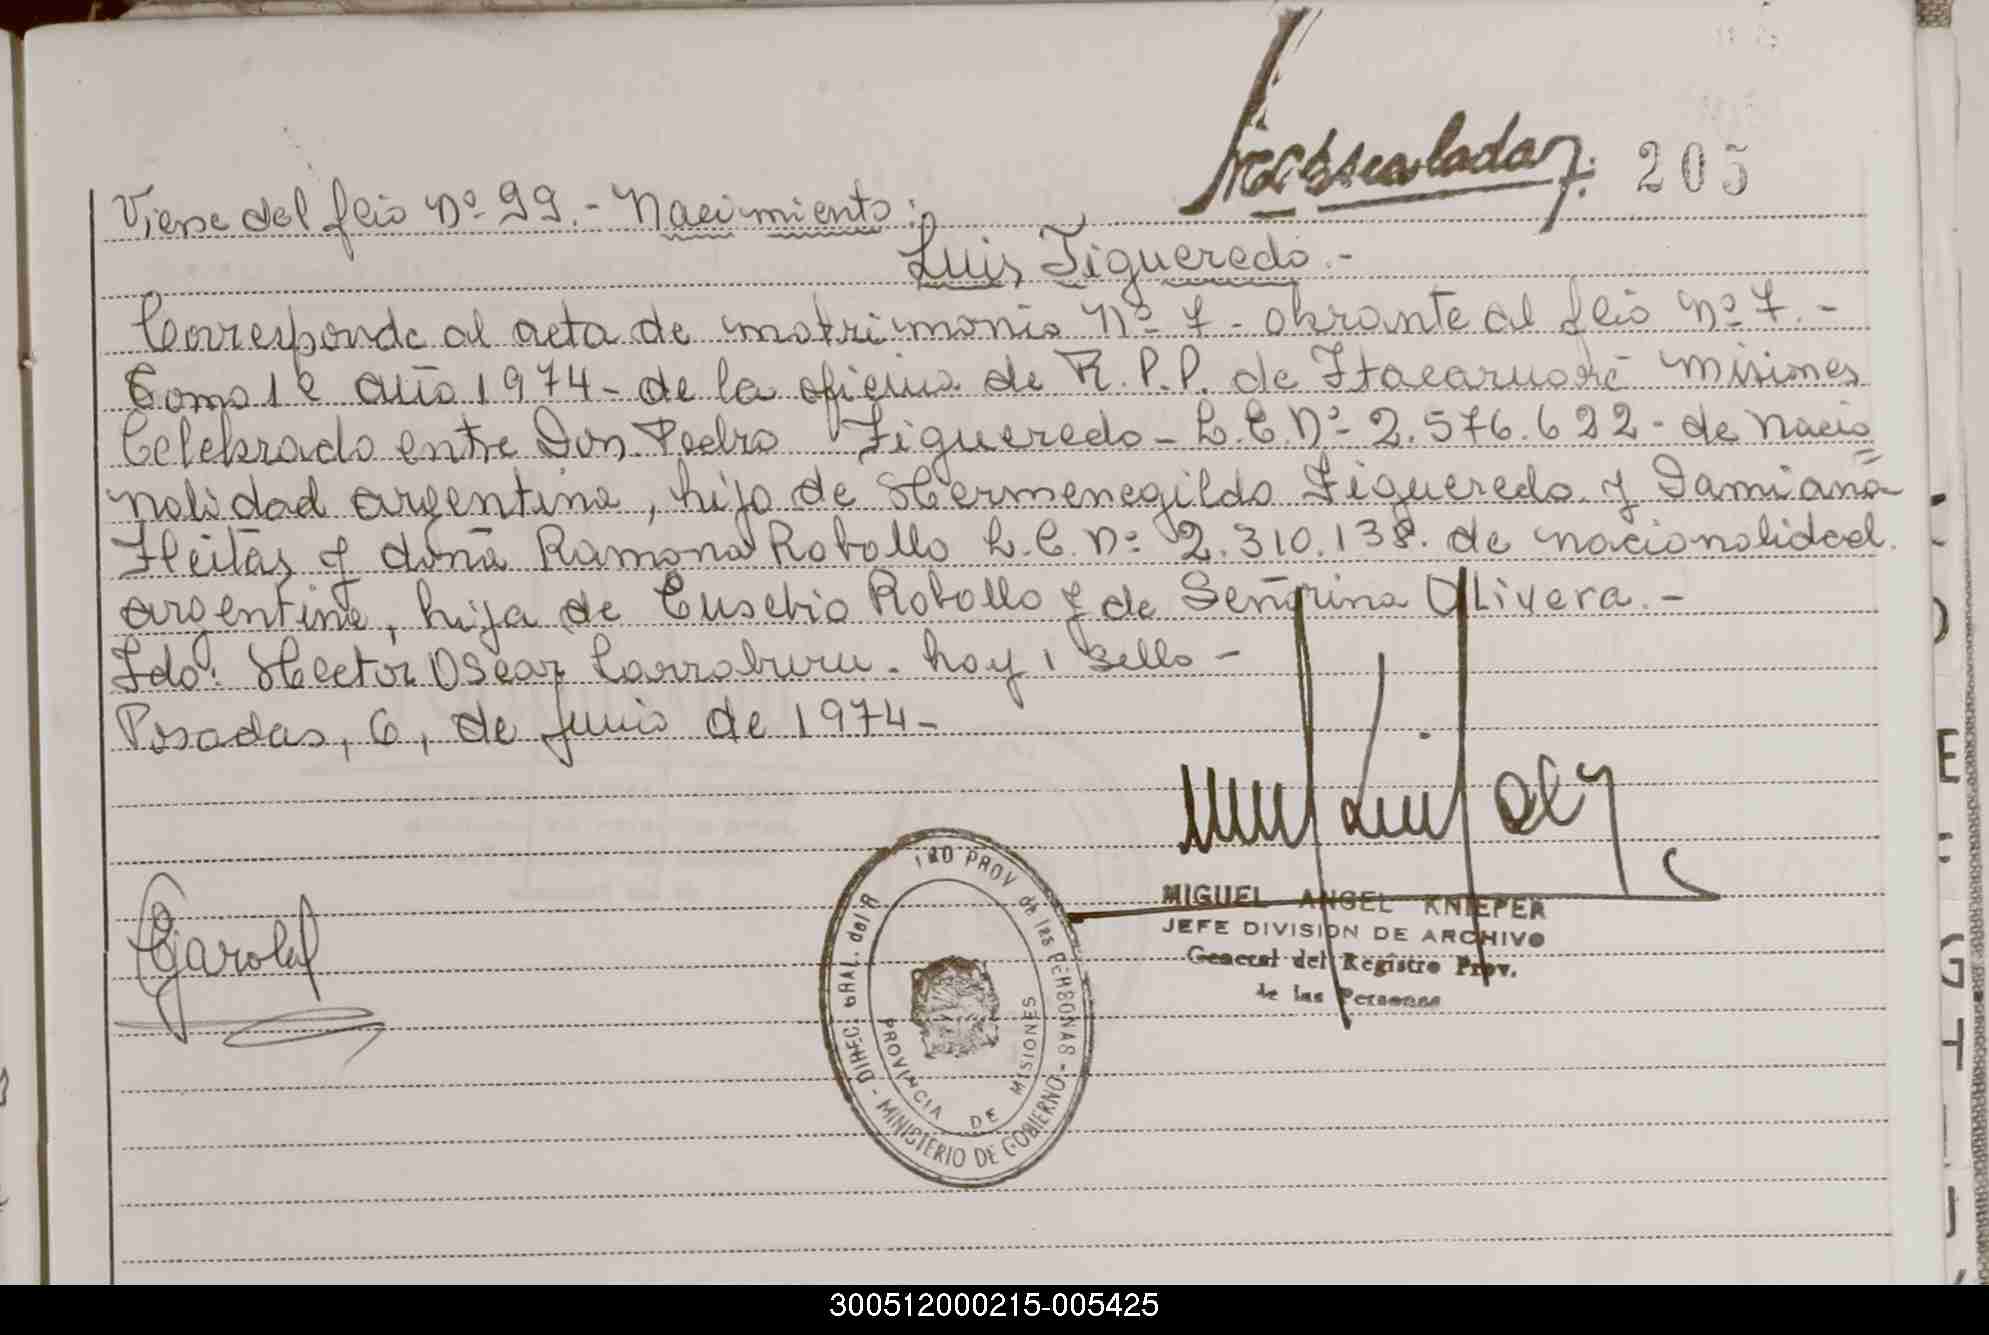 205
Viene del flio Nº 99.- Nacimiento:
Luis Figueredo.-
Corresponde al acta de matrimonio Nº 7- obrante al flio Nº 7.-
Tomo 1º año 1974- de la oficina de R.P.P. de Itacaruaré Misiones
Celebrado entre Don Pedro Figueredo- L.E.Nº- 2.576.622- de nacio
nalidad argentina, hijo de Hermenegildo Figueredo y Damiana
Fleitas y doña Ramona Robollo L.C.Nº 2.310.138. de nacionalidad
argentina, hija de Eusebio Robollo y de Señorina Olivera.-
Fdo: Hector Oscar Larraburu- hay 1 sello-
Posadas, 6, de junio de 1974-
MIGUEL ANGEL KNIEPER
JEFE DIVISION DE ARCHIVO
General del Registro Prov.
de las Personas
DIREC. GRAL. del R PROV de las PERSONAS - MINISTERIO DE GOBIERNO -
PROVINCIA DE MISIONES
300512000215-005425